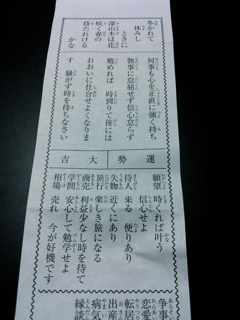 冬かれて
休みし
ときに
深山木は花
咲く春の
待たれける
かな
何事も心を正直に強く持ち
物事に怠屈せず信心怠らず
勉めれば 時到りて後には
おおいに仕合せよくなりま
す 騒がず時を待ちなさい
運勢
大吉
願望 時くれば叶う
信心せよ
待人 来る 便りあり
失物 近くにあり
旅行 楽しき旅になる
商売 利益少なし時を待て
学問 安心して勉学せよ
相場 売れ 今が好機です
争事
恋愛
転居
出産
病気
縁談